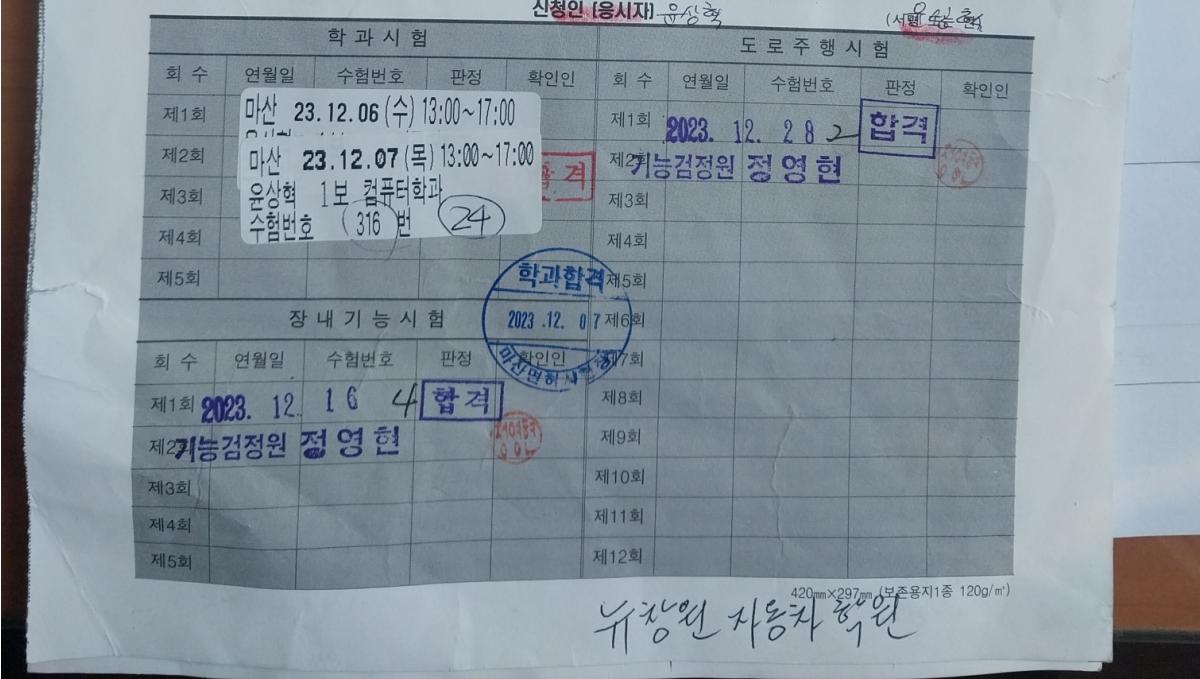 신청인 [응시자] 윤상혁
(서명
학과시험
회수 연월일 수험번호 판정 확인인
제1회 마산 23.12.06(수) 13:00~17:00
제2회 마산 23.12.07(목) 13:00~17:00 합격
제3회 윤상혁 1보 컴퓨터학과
수험번호 (316)번 24
제4회
제5회
학과합격
2023.12.07
마산면허시험장
장내기능시험
회수 연월일 수험번호 판정 확인인
제1회 2023. 12. 16 4 합격
제2회 기능검정원 정영현
제3회
제4회
제5회
도로주행시험
회수 연월일 수험번호 판정 확인인
제1회 2023. 12. 28 2 합격
제2회 기능검정원 정영현
제3회
제4회
제5회
제6회
제7회
제8회
제9회
제10회
제11회
제12회
420㎜×297㎜ (보존용지1종 120g/㎡)
뉴창원 자동차 학원